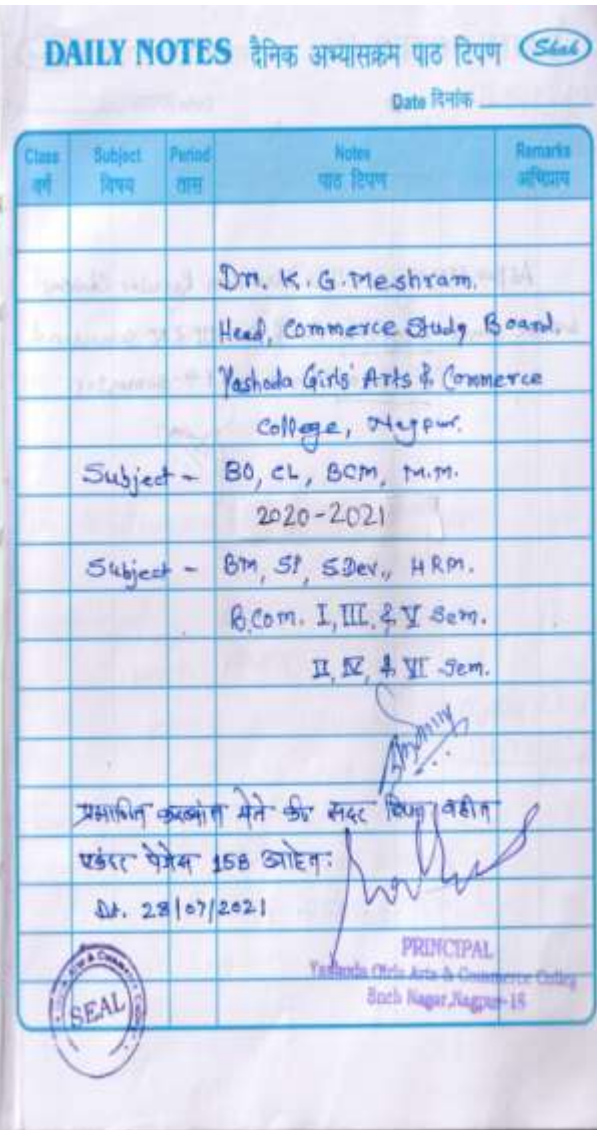 DAILY NOTES दैनिक अभ्यासक्रम पाठ टिपण Shah
Date दिनांक
Class Subject Period Notes Remarks
वर्ग विषय तास पाठ टिपण अभिप्राय
Dr. K. G. Meshram.
Head, Commerce Study Board.
Yashoda Girls' Arts & Commerce
College, Nagpur.
Subject - BO, CL, BCM, M.M.
2020-2021
Subject - BM, SP, S.Dev., HRM.
B.Com. I, III, & V Sem.
II, IV, & VI Sem.
प्रमाणित करण्यात येते की सदर टिपण वहीत
एकंदर पेजेस 158 आहेत:
Dt. 28/07/2021
PRINCIPAL
Yashoda Girls Arts & Commerce College
Sneh Nagar, Nagpur-15
SEAL